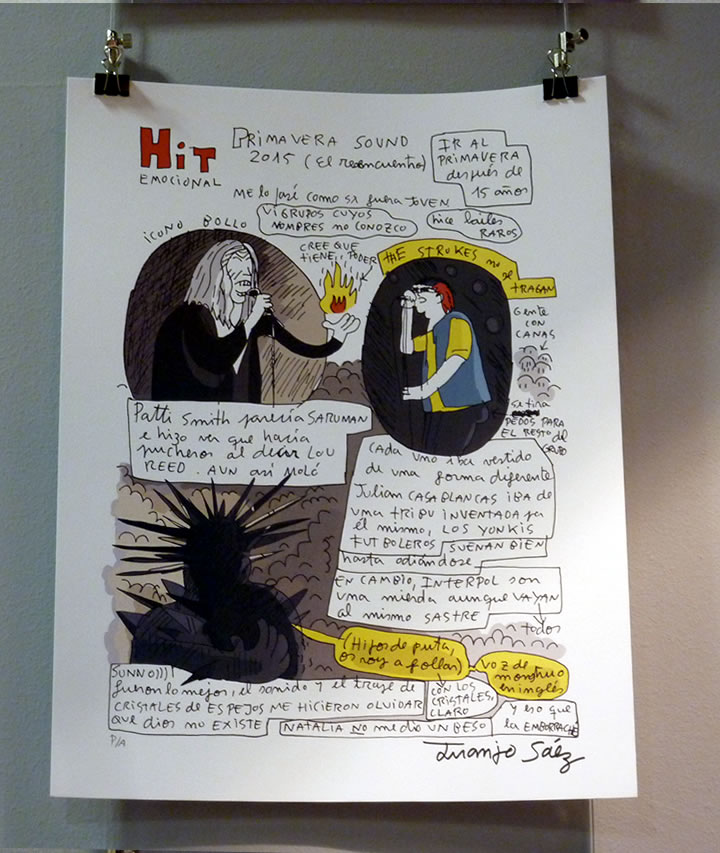 HiT
EMOCIONAL
PRIMAVERA SOUND
2015 (el reencuentro)
IR AL
PRIMAVERA
después de
15 años
Me lo pasé como si fuera joven
Vi GRUPOS CUYOS
NOMBRES no CONOZCO
hice bailes
RAROS
icono BOLLO
CREE QUE
TIENE PODER
THE STROKES no
se
TRAGAN
Gente
CON
CANAS
se tira
PEDOS PARA
EL RESTO del
GRUPO
Patti Smith parecía SARUMAN
e hizo ver que hacía
pucheros al decir LOU
REED. AUN así MOLÓ
CADA UNO iba vestido
de una forma diferente
Julian CASABLANCAS IBA de
una TRIBU INVENTADA por
él mismo, LOS YONKIS
FUTBOLEROS SUENAN BIEN
hasta odiándose
EN CAMBIO, INTERPOL son
una mierda aunque VAYAN
al mismo SASTRE
todos
(Hijos de puta,
os voy a follar)
VOZ DE
monstruo
en inglés
SUNNO)))
fueron lo mejor, el sonido y el traje de
CRISTALES de ESPEJOS ME HICIERON OLVIDAR
QUE dios no EXISTE
CON LOS
CRISTALES,
CLARO
NATALIA NO me dio UN BESO
y eso que
la EMBORRACHÉ
P/A
Juanjo Sáez